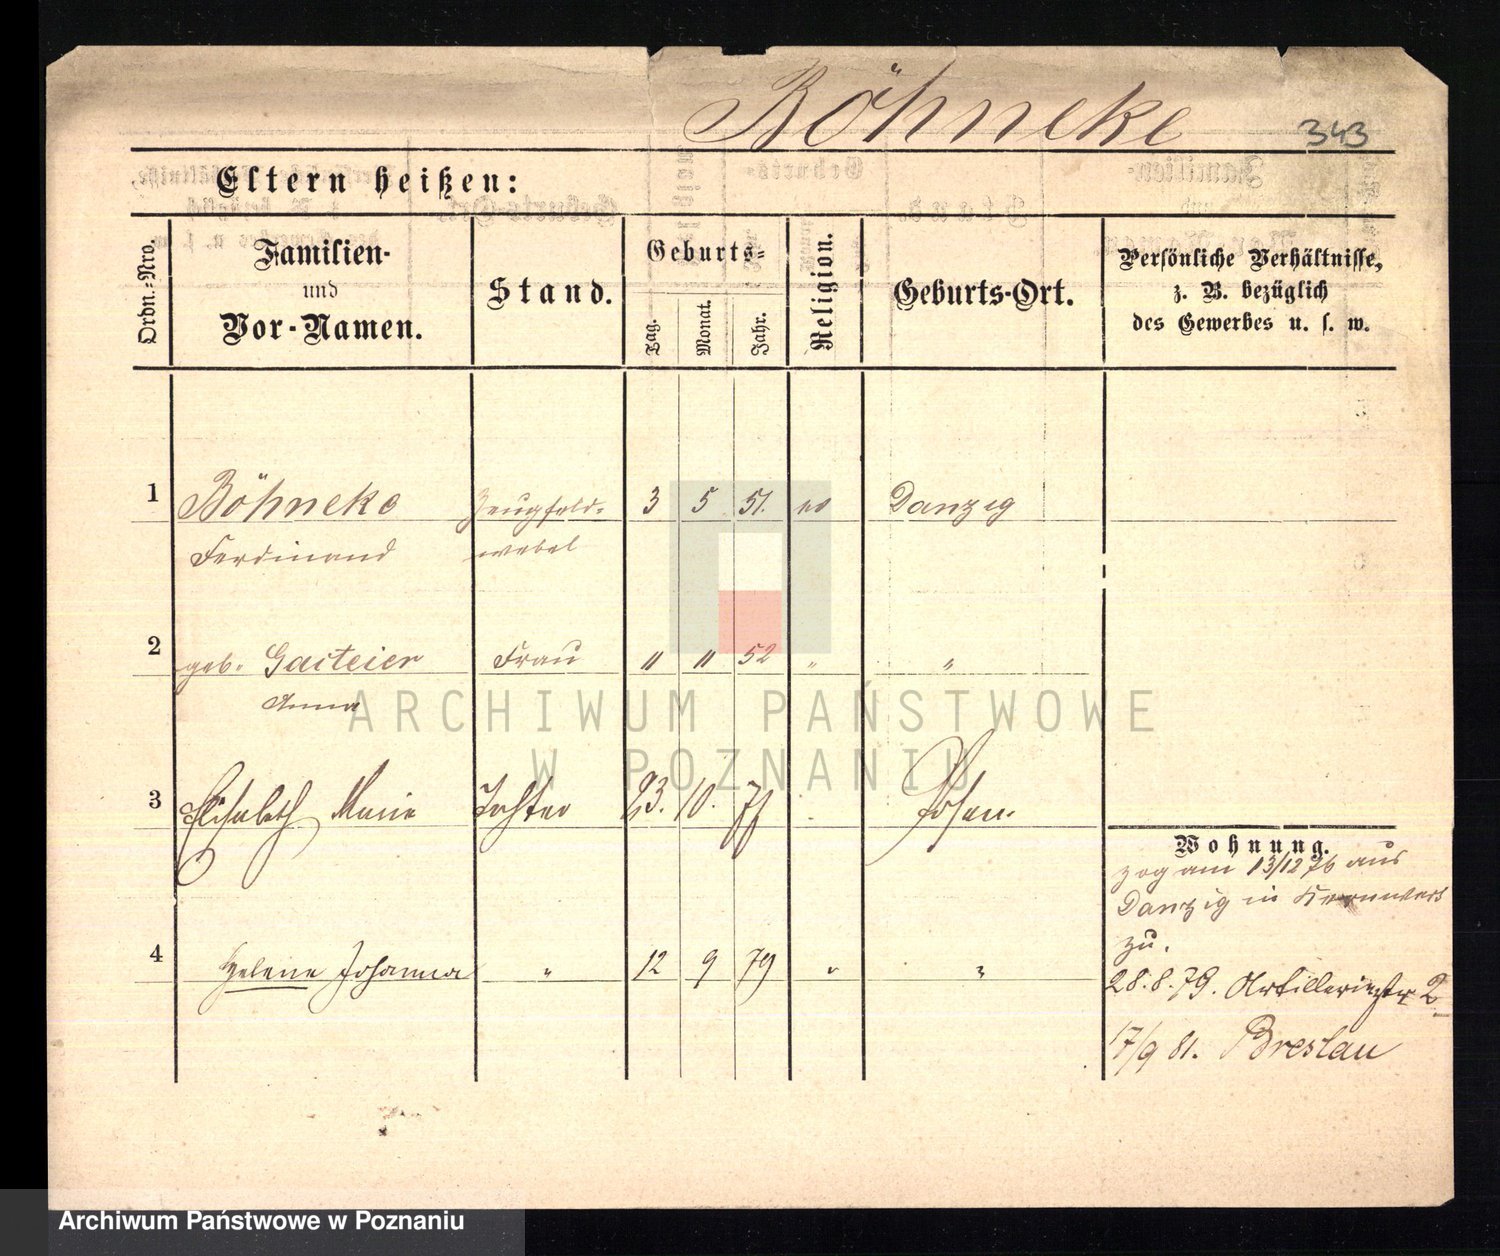 Böhneke 343
Eltern heißen:
Ordn.-Nro.
Familien-
und
Vor-Namen.
Stand.
Geburts-
Tag.
Monat.
Jahr.
Religion.
Geburts-Ort.
Persönliche Verhältnisse,
z. B. bezüglich
des Gewerbes u. s. w.
1 Böhneke Zeugfeld- 3 5 51. ev Danzig
Ferdinand webel
2 geb. Gasteier Frau " " 52 " "
Anna
3 Elisabeth Marie Tochter 23. 10. 77 Posen.
Wohnung.
zog am 13/12 76 aus
Danzig in Kernwerk
zu.
4 Helene Johanna " 12 9 79 " "
28.8.79. Artilleriestr 2
17/9 81. Breslau
ARCHIWUM PAŃSTWOWE
W POZNANIU
Archiwum Państwowe w Poznaniu